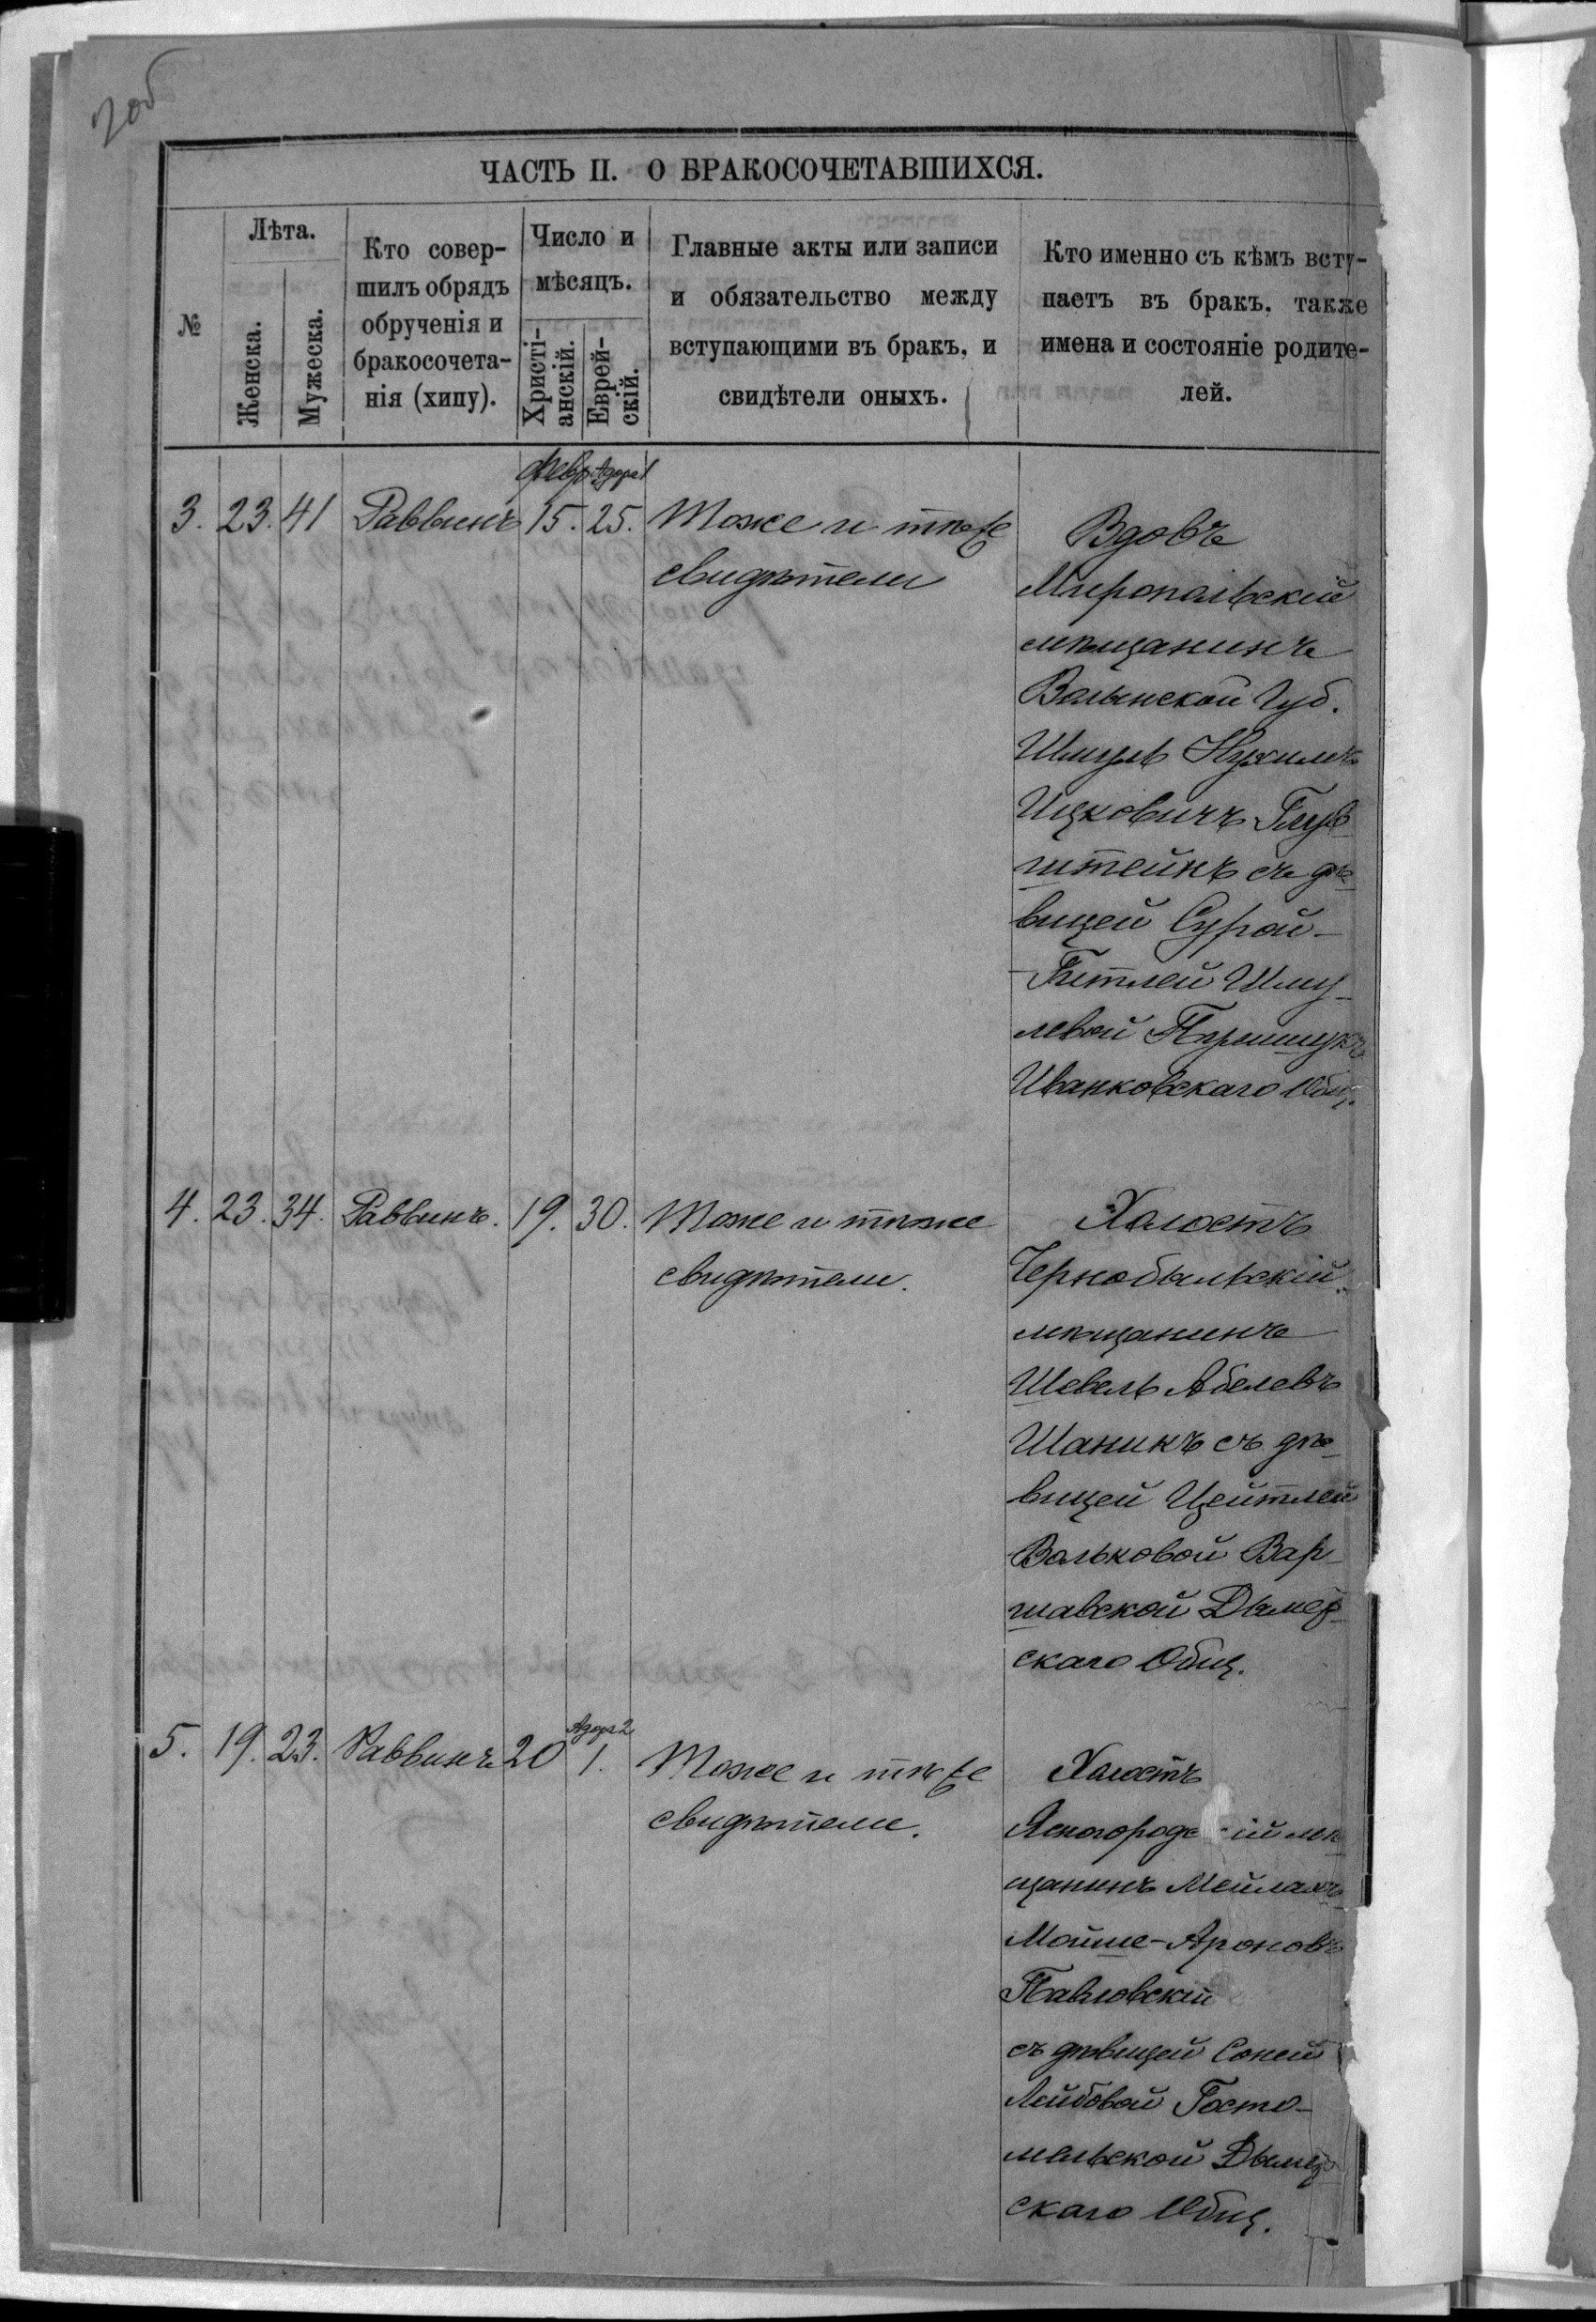 2об
ЧАСТЬ II. О БРАКОСОЧЕТАВШИХСЯ.
№
Лѣта.
Женска.
Мужеска.
Кто совер-
шилъ обрядъ
обрученія и
бракосочета-
нія (хипу).
Число и
мѣсяцъ.
Христі-
анскій.
Еврей-
скій.
Главные акты или записи
и обязательство между
вступающими въ бракъ, и
свидѣтели оныхъ.
Кто именно съ кѣмъ всту-
паетъ въ бракъ, также
имена и состояніе родите-
лей.
Февр. Адора 1
3. 23. 41 Раввинъ 15. 25. Тоже и тѣже
свидѣтели
Вдовъ
Миропольскій
мѣщанинъ
Волынской Губ.
Шмуль Нухимъ
Ицковичъ Глув
штейнъ съ дѣ
вицей Сурой-
-Гитлей Шму-
левой
Иванковскаго Общ.
4. 23. 34. Раввинъ. 19. 30. Тоже и тѣже
свидѣтели.
Холостъ
Чернобыльскій
мѣщанинъ
Шевель Абелевъ
Шаникъ съ дѣ-
вицей Цейтлей
Вольковой Вар-
шавской Дымер-
скаго Общ.
Адора 2
5. 19. 23. Раввинъ 20 1. Тоже и тѣже
свидѣтели.
Холостъ
Ясногородскій мѣ
щанинъ Мейлахъ
Мойше-Ароновъ
Павловскій
съ дѣвицей Соней
Лейбовой Госто-
мельской Дымер
скаго Общ.